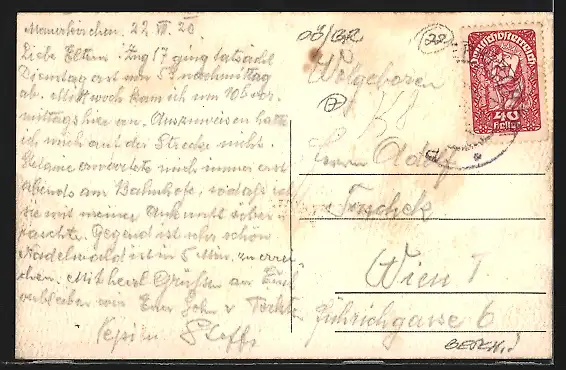 Mauerkirchen. 22. VII. 20.
Liebe Eltern! Zug 17 ging tatsächl
Dienstag erst um 5h nachmittag
ab. Mittwoch kam ich um 10h vor-
mittags hier an. Auszuweisen hatte
ich mich auf der Strecke nicht.
erwartete mich immer erst
abends am Bahnhofe, sodaß ich
sie mit meiner Ankunft
Gegend ist sehr schön
Nadelwald ist in zu errei-
chen. Mit herzl Grüßen an Euch
verbleiben wir Euer Sohn u Tochter
Pepi u Steffi
OÖ/BR
22
Deutschösterreich
40
Heller
Wolgeboren
Herrn Adolf
Wien I.
6